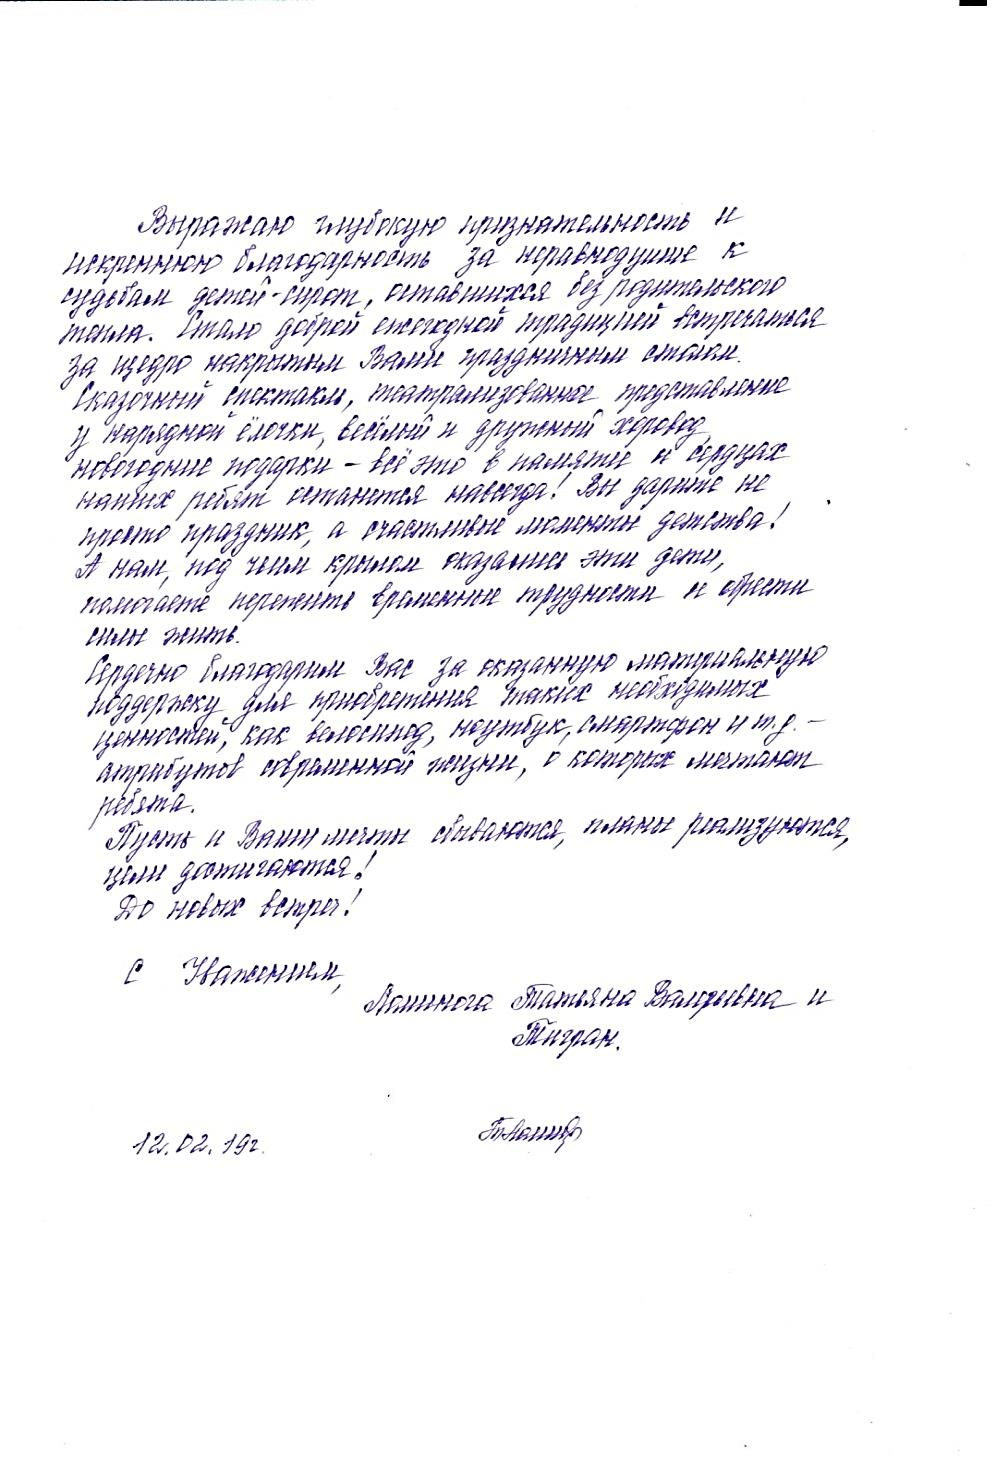 Выражаю глубокую признательность и
искреннюю благодарность за неравнодушие к
судьбам детей-сирот, оставшихся без родительского
тепла. Стало доброй ежегодной традицией встречаться
за щедро накрытым Вами праздничным столом.
Сказочный спектакль, театрализованное представление
у нарядной ёлочки, весёлый и дружный хоровод,
новогодние подарки – всё это в памяти и сердцах
наших ребят останется навсегда! Вы дарите не
просто праздник, а счастливые моменты детства!
А нам, под чьим крылом оказались эти дети,
помогаете пережить временные трудности и обрести
силы жить.
Сердечно благодарим Вас за оказанную материальную
поддержку для приобретения таких необходимых
ценностей, как велосипед, ноутбук, смартфон и т.д. –
атрибутов современной жизни, о которых мечтают
ребята.
Пусть и Ваши мечты сбываются, планы реализуются,
цели достигаются!
До новых встреч!
С Уважением,
Татьяна Валерьевна и
Тигран.
12.02.19г.